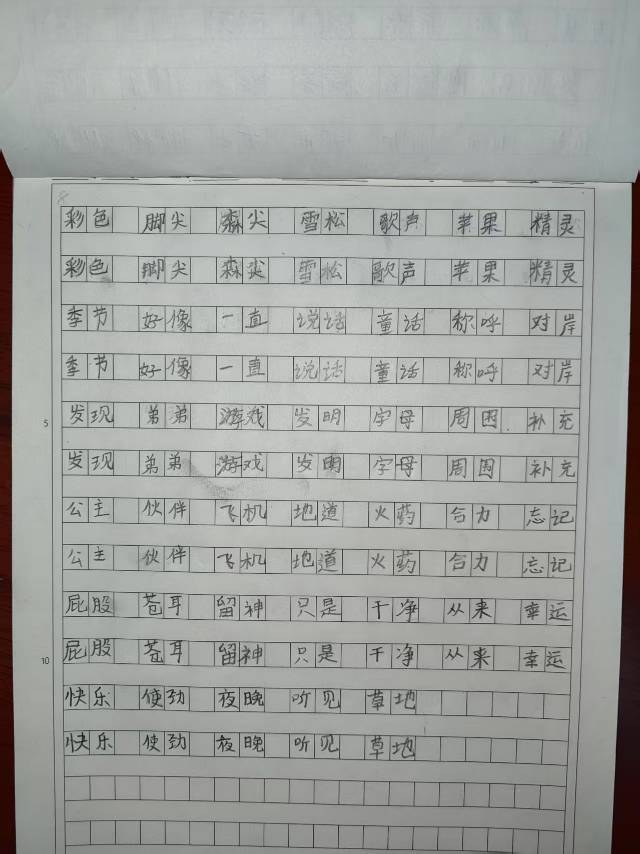 彩色 脚尖 森尖 雪松 歌声 苹果 精灵
彩色 脚尖 森尖 雪松 歌声 苹果 精灵
季节 好像 一直 说话 童话 称呼 对岸
季节 好像 一直 说话 童话 称呼 对岸
5 发现 弟弟 游戏 发明 字母 周围 补充
发现 弟弟 游戏 发明 字母 周围 补充
公主 伙伴 飞机 地道 火药 合力 忘记
公主 伙伴 飞机 地道 火药 合力 忘记
屁股 苍耳 留神 只是 干净 从来 幸运
10 屁股 苍耳 留神 只是 干净 从来 幸运
快乐 使劲 夜晚 听见 草地
快乐 使劲 夜晚 听见 草地